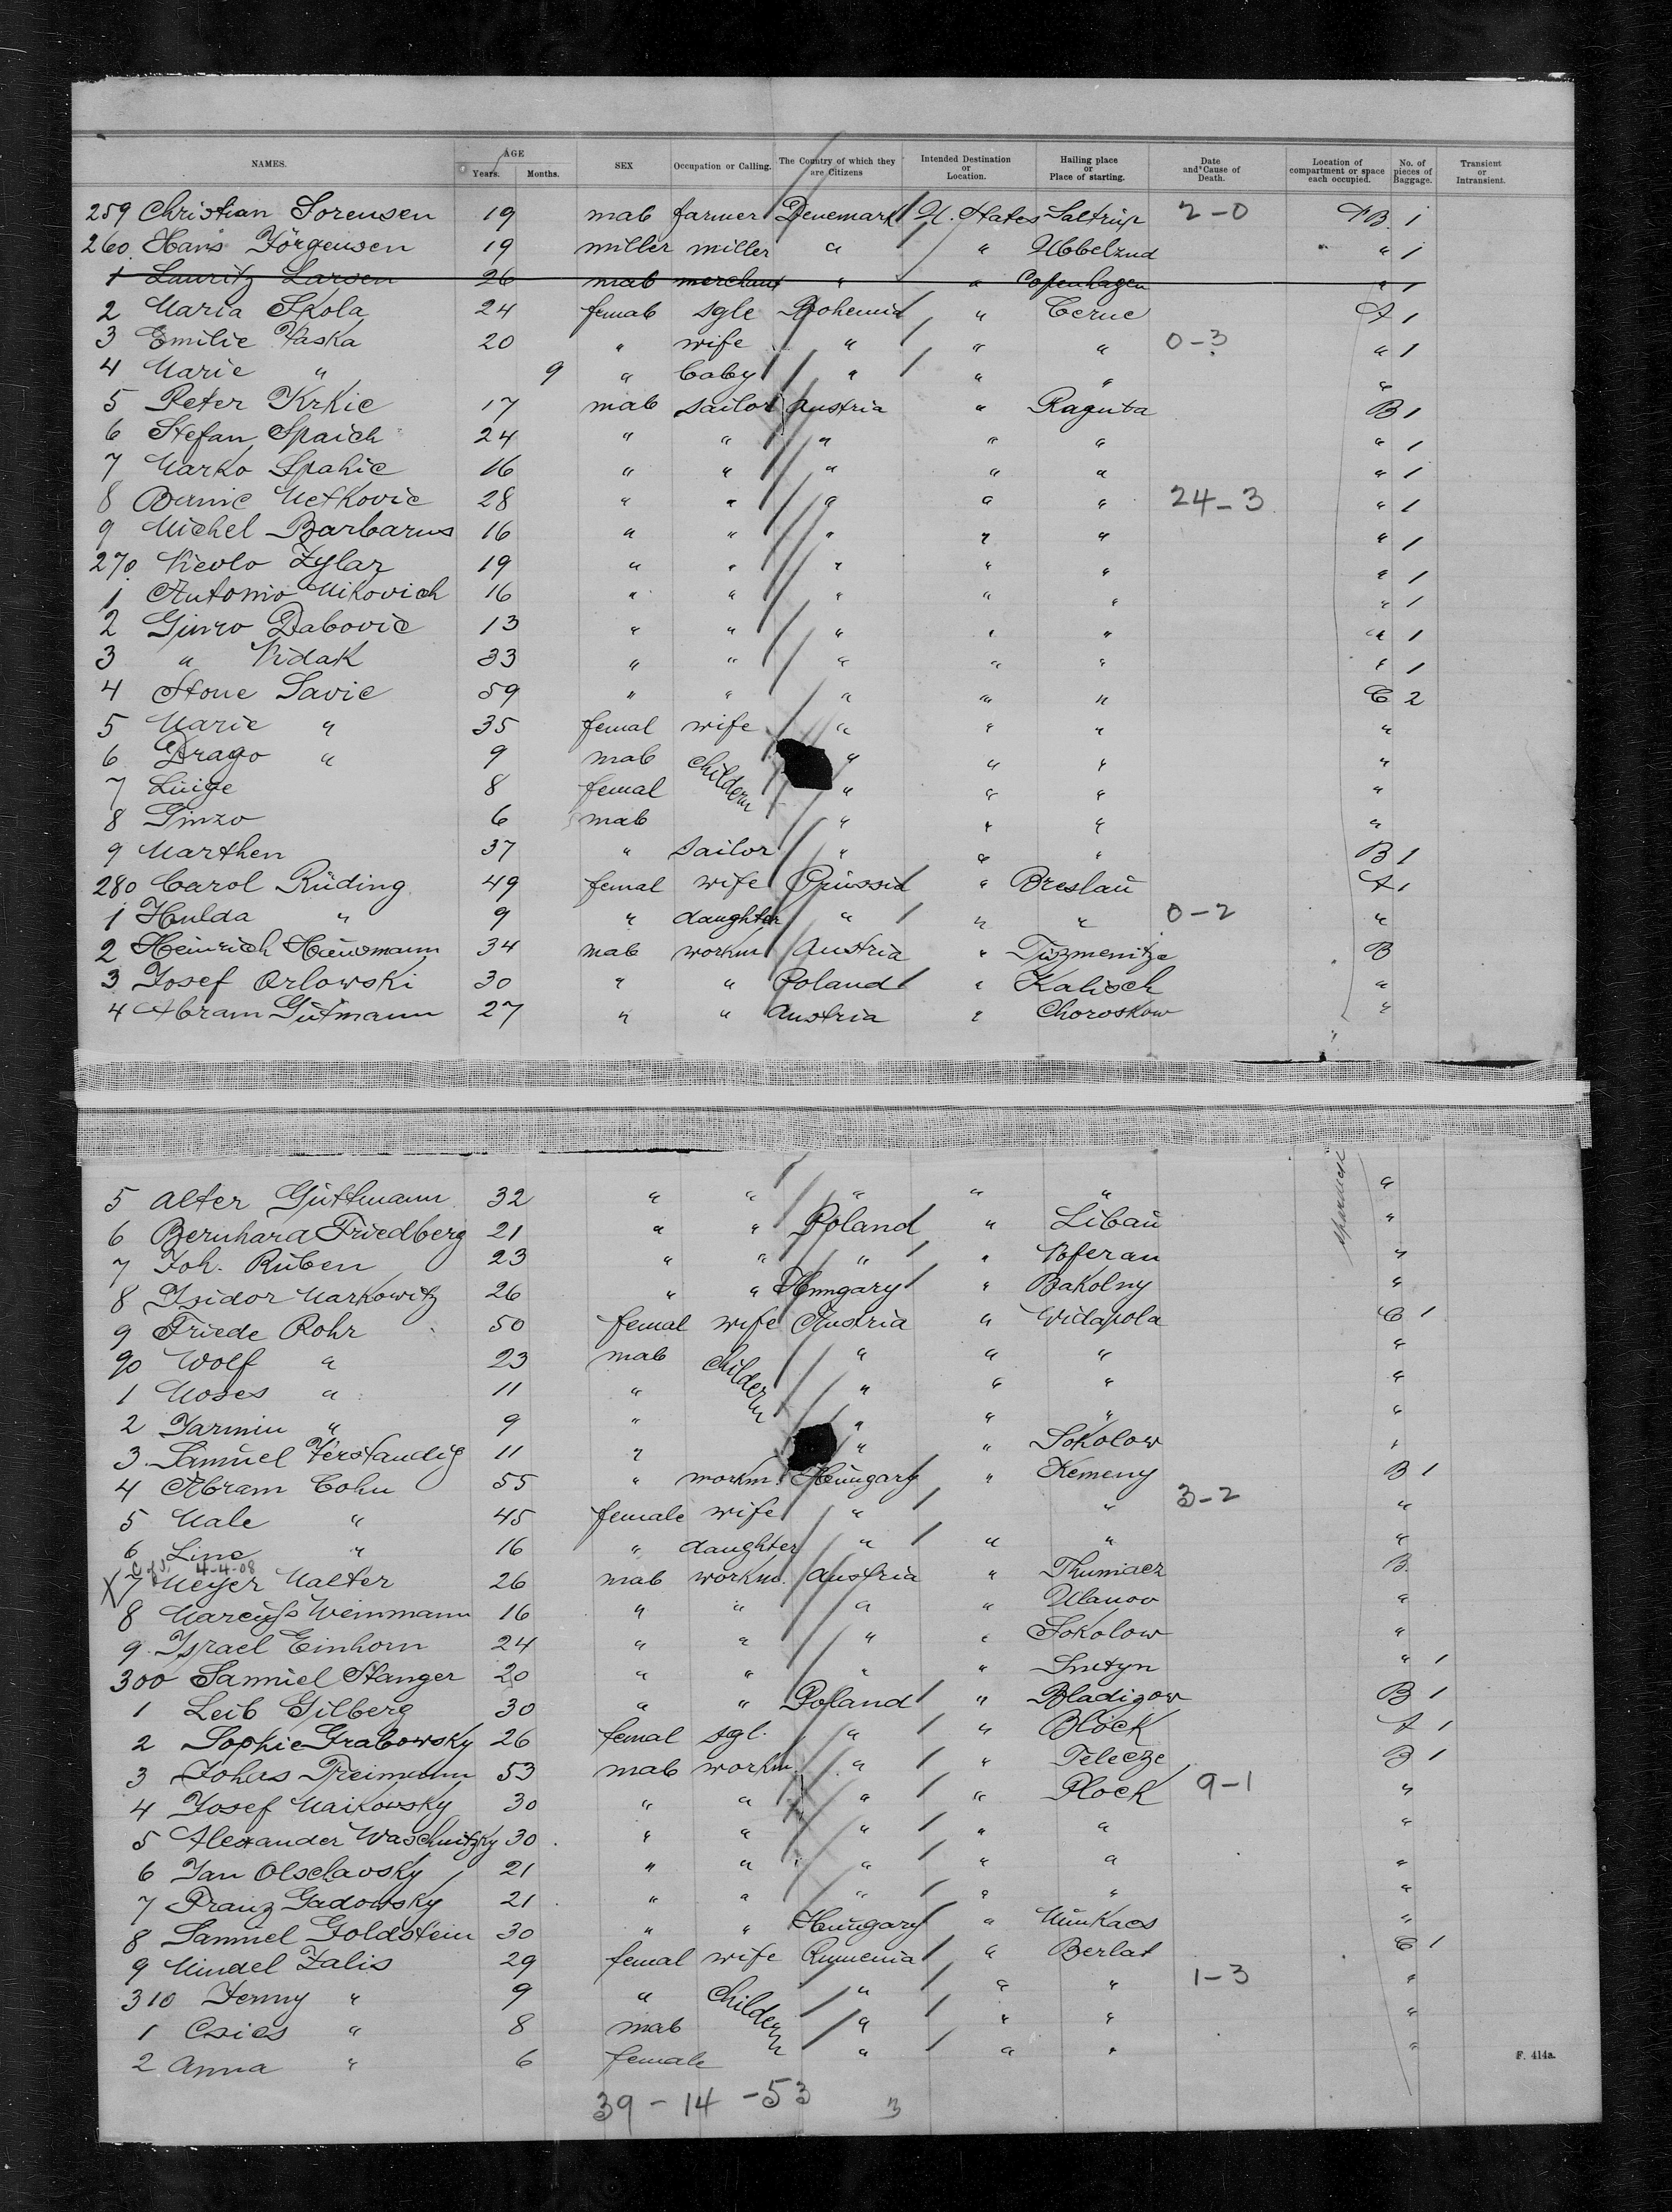 NAMES. AGE Years. Months. SEX Occupation or Calling. The Country of which they are Citizens Intended Destination or Location. Hailing place or Place of starting. Date and Cause of Death. Location of compartment or space each occupied. No. of pieces of Baggage. Transient or Intransient.
259 Christian Sorensen 19 male farmer Denemark U. States Saltrup 2-0 B. 1
260. Hans Jörgensen 19 miller miller " " Ubbelzud " 1
1 Lauritz Larsen 26 male merchant " " Copenhagen " 1
2 Maria Skola 24 female sgle Bohemia " Cerne A 1
3 Emilie Vaska 20 " wife " " " 0-3 " 1
4 Marie " 9 " baby " " " "
5 Peter Krkic 17 male sailor Austria " Raguba B 1
6 Stefan Spaich 24 " " " " " " 1
7 Marko Spahic 16 " " " " " " 1
8 Metkovic 28 " " " " " 24-3 " 1
9 Michel Barbarus 16 " " " " " " 1
270. Nicolo Zylaz 19 " " " " " " 1
1 Antonio Mikovich 16 " " " " " " 1
2 Ginro Dabovic 13 " " " " " " 1
3 " Vidak 33 " " " " " " 1
4 Stone Savic 59 " " " " " C 2
5 Marie " 35 femal wife " " " "
6 Drago " 9 male childern " " " "
7 Luige 8 femal " " " "
8 Ginzo 6 male " " " "
9 Marthen 37 " sailor " " " B 1
280 Carol Rüding 49 femal wife Prussia " Breslau A 1
1 Hulda " 9 " daughter " " " 0-2 "
2 Heinrich Hausmann 34 male workm Austria " Tüzmenitze B
3 Josef Orlowski 30 " " Poland " Kalisch "
4 Abram Gutmann 27 " " Austria " Choroskow "
5 Alter Guttmann 32 " " " " " "
6 Bernhard Friedberg 21 " " Poland " Libau "
7 Joh. Ruben 23 " " " " Voferan "
8 Isidor Markowitz 26 " " Hungary " Bakolny "
9 Friede Rohr 50 femal wife Austria " Widapola C 1
90 Wolf " 23 male childern " " " "
1 Moses " 11 " " " " "
2 Jarmin " 9 " " " " "
3. Samuel Verstandig 11 " " " Sokolow "
4 Abram Cohn 55 " workm. Hungary " Kemeny B 1
5 Male " 45 female wife " " 3-2 "
6 Line " 16 " daughter " " " "
4-4-08
X 7 Meyer Malter 26 male workm. Austria " Thumacz B.
8 Marcus Weinmann 16 " " " " Ulanov "
9. Israel Einhorn 24 " " " " Sokolow "
300 Samuel Stanger 20 " " " " Snetyn " 1
1 Leib Gilberg 30 " " Poland " Bladigow B 1
2 Sophie Grabowsky 26 femal sgl. " " Block A 1
3 Treimann 53 male workm. " " Teleeze B 1
4 Josef Maikowsky 30 " " " " Plock 9-1 "
5 Alexander Waschnitzky 30 " " " " " "
6 Jan Olschavsky 21 " " " " " "
7 Franz Gadowsky 21 " " " " " "
8 Samuel Goldstein 30 " " Hungary " Munkacs "
9 Mindel Zalis 29 femal wife Rumenia " Berlat C 1
310 Jenny " 9 " childern " " " 1-3 "
1 Csies " 8 male " " " "
2 Anna " 6 female " " " "
F. 414a.
39 - 14 - 53 3